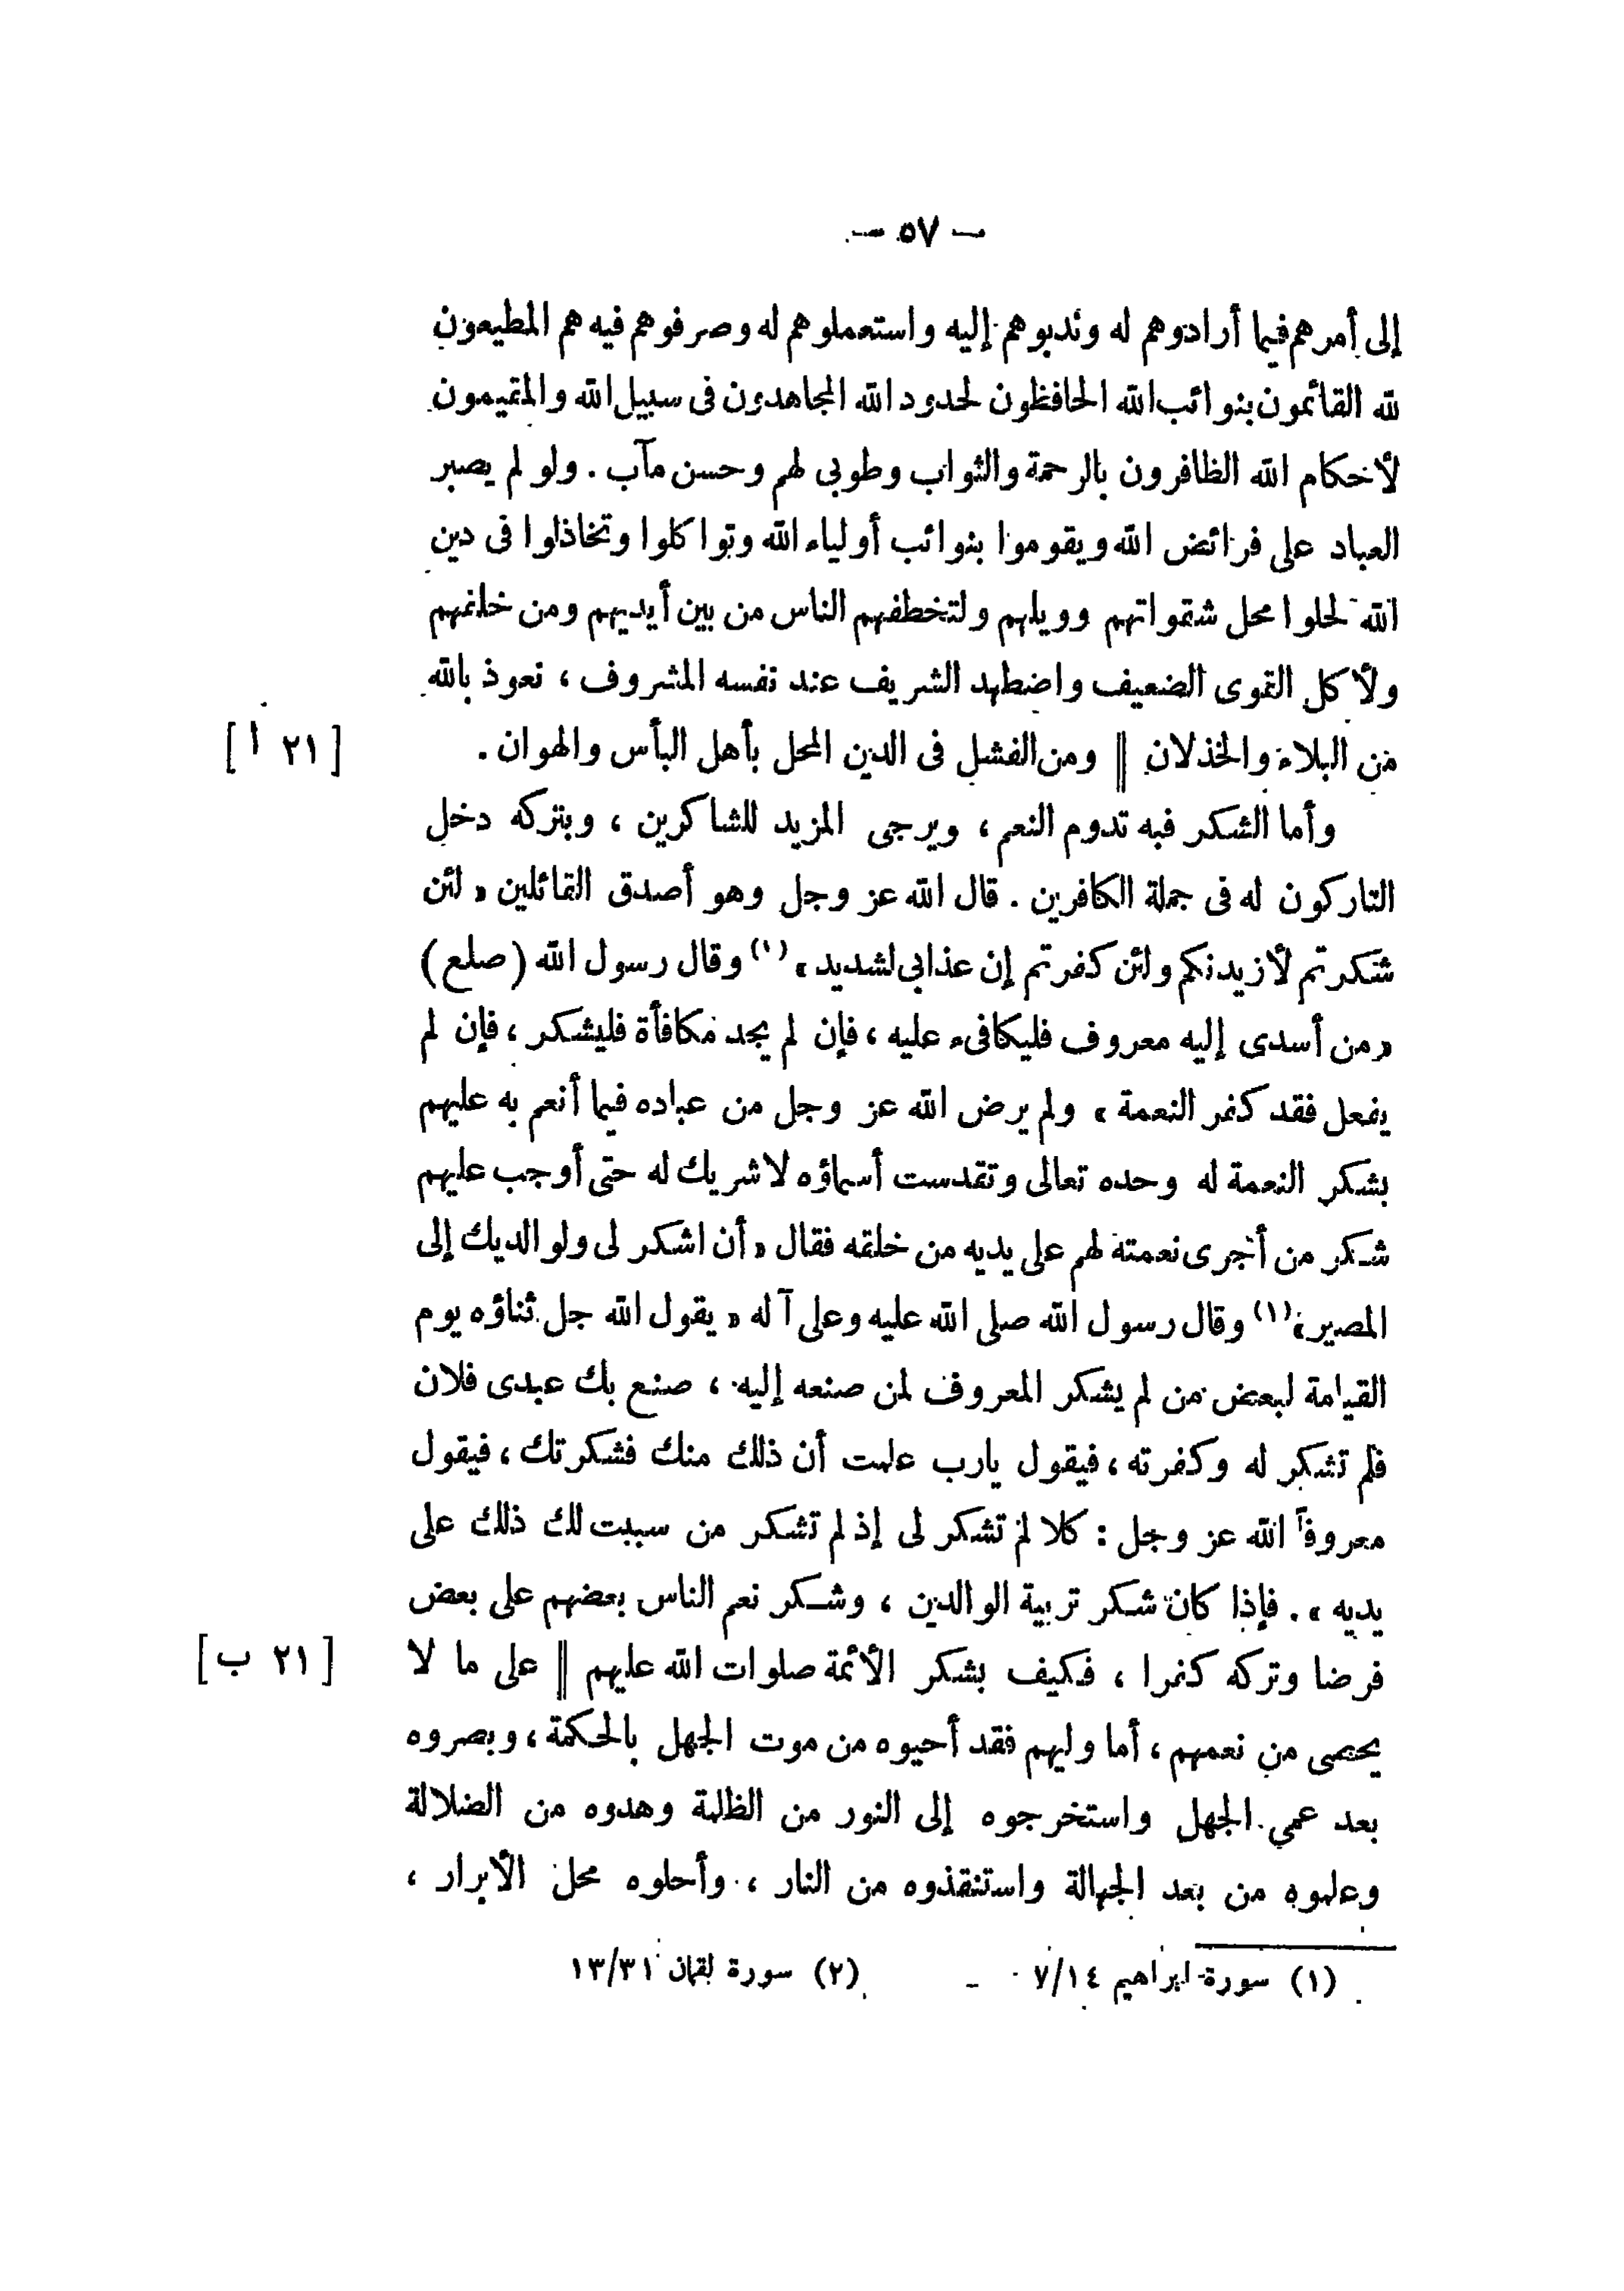 — ٥٧ —
إلى أمرهم فيما أرادوهم له وندبوهم إليه واستعملوهم له وصرفوهم فيه هم المطيعون
لله القائمون بنوائب الله الحافظون لحدود الله المجاهدون فى سبيل الله والمقيمون
لأحكام الله الظافرون بالرحمة والثواب وطوبى لهم وحسن مآب . ولو لم يصبر
العباد على فرائض الله ويقوموا بنوائب أولياء الله وتواكلوا وتخاذلوا فى دين
الله لحلوا محل شقواتهم وويلهم ولتخطفهم الناس من بين أيديهم ومن خلفهم
ولأكل القوى الضعيف واضطهد الشريف عند نفسه المشروف ، نعوذ بالله
من البلاء والخذلان || ومن الفشل فى الدين المحل بأهل البأس والهوان . [ ٢١ أ ]
وأما الشكر فبه تدوم النعم ، ويرجى المزيد للشاكرين ، وبتركه دخل
التاركون له فى جملة الكافرين . قال الله عز وجل وهو أصدق القائلين « لئن
شكرتم لأزيدنكم ولئن كفرتم إن عذابى لشديد » (١) وقال رسول الله (صلع)
« من أسدى إليه معروف فليكافىء عليه ، فإن لم يجد مكافأة فليشكر ، فإن لم
يفعل فقد كفر النعمة » ولم يرض الله عز وجل من عباده فيما أنعم به عليهم
بشكر النعمة له وحده تعالى وتقدست أسماؤه لا شريك له حتى أوجب عليهم
شكر من أجرى نعمته لهم على يديه من خلقه فقال « أن اشكر لى ولوالديك إلى
المصير » (١) وقال رسول الله صلى الله عليه وعلى آله « يقول الله جل ثناؤه يوم
القيامة لبعض من لم يشكر المعروف لمن صنعه إليه ، صنع بك عبدى فلان
فلم تشكر له وكفرته ، فيقول يارب علمت أن ذلك منك فشكرتك ، فيقول
معروفاً الله عز وجل : كلا لم تشكر لى إذ لم تشكر من سببت لك ذلك على
يديه » . فإذا كان شكر تربية الوالدين ، وشكر نعم الناس بعضهم على بعض
فرضا وتركه كفرا ، فكيف بشكر الأئمة صلوات الله عليهم || على ما لا [ ٢١ ب ]
يحصى من نعمهم ، أما وليهم فقد أحيوه من موت الجهل بالحكمة ، وبصروه
بعد عمي الجهل واستخرجوه إلى النور من الظلمة وهدوه من الضلالة
وعلموه من بعد الجهالة واستنقذوه من النار ، وأحلوه محل الأبرار ،
(١) سورة ابراهيم ٧/١٤ (٢) سورة لقمان ١٣/٣١